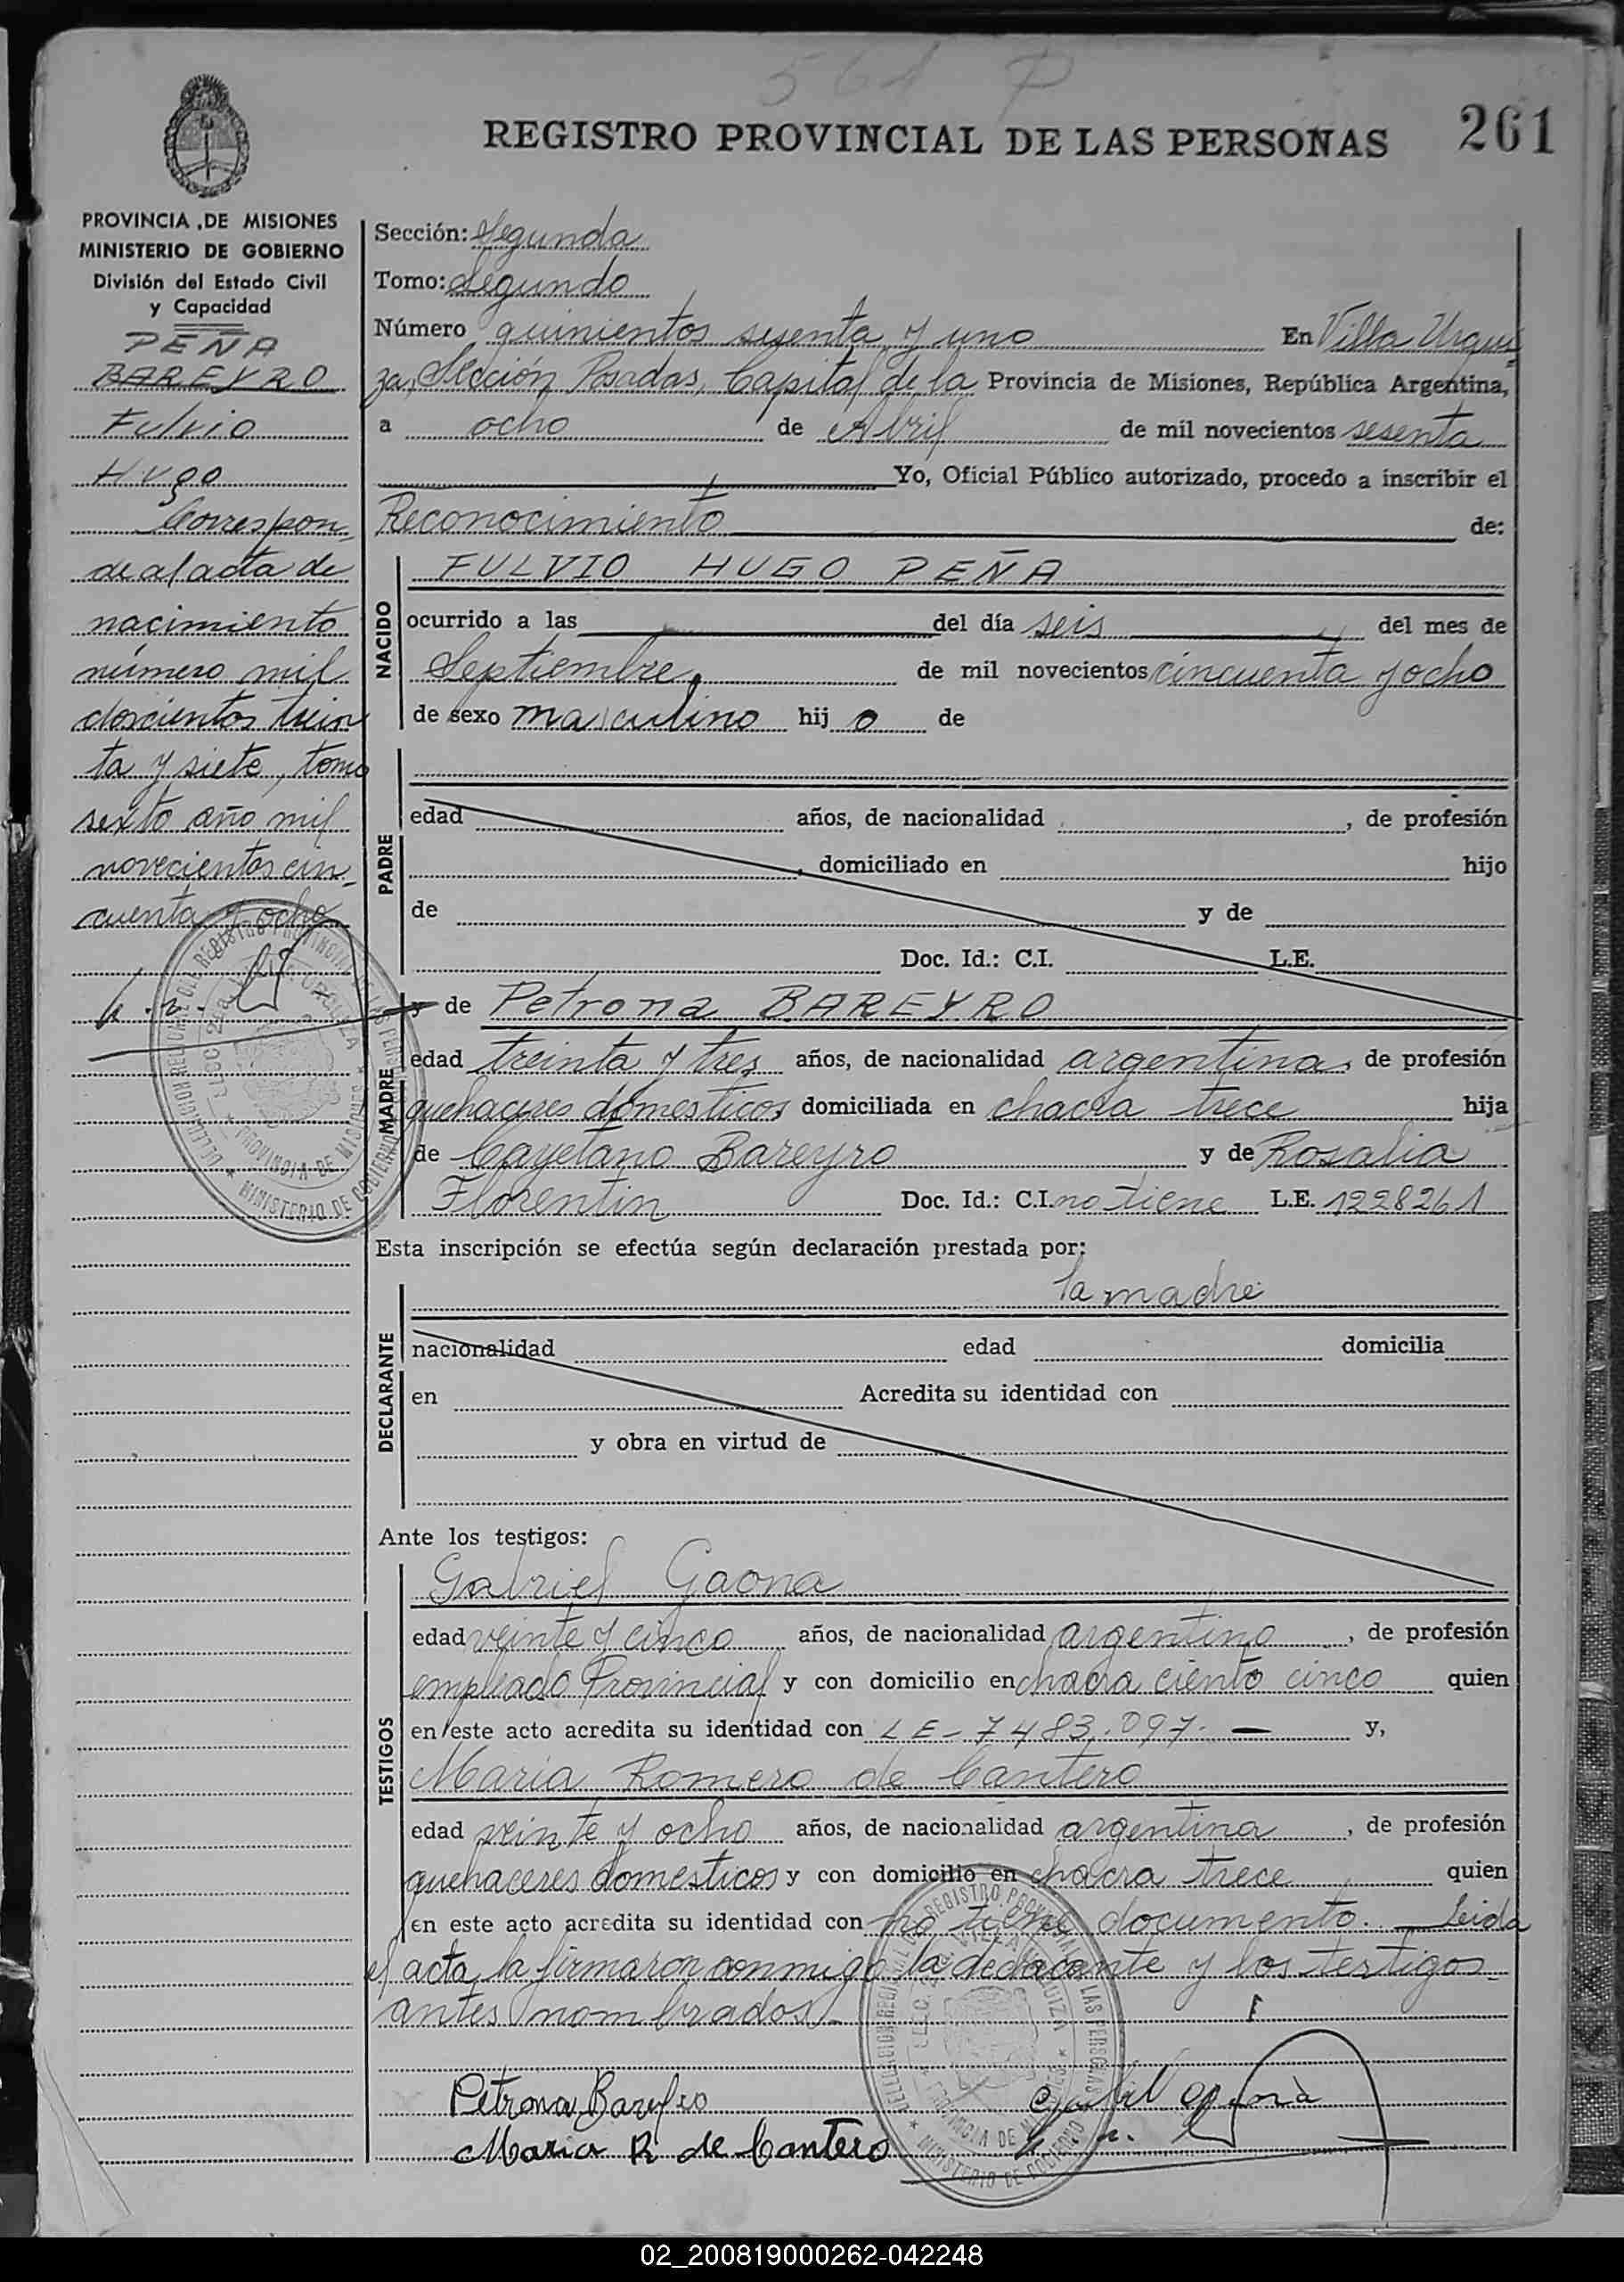 561 P
REGISTRO PROVINCIAL DE LAS PERSONAS 261
PROVINCIA DE MISIONES
MINISTERIO DE GOBIERNO
División del Estado Civil
y Capacidad
PEÑA
BAREYRO
Fulvio
Hugo
Correspon-
de al acta de
nacimiento
número mil
doscientos trein
ta y siete, tomo
sexto año mil
novecientos cin-
cuenta y ocho
Sección: Segunda
Tomo: Segundo
Número quinientos sesenta y uno En Villa Urqui-
za, Sección Posadas, Capital de la Provincia de Misiones, República Argentina,
a ocho de Abril de mil novecientos sesenta
Yo, Oficial Público autorizado, procedo a inscribir el
Reconocimiento de:
NACIDO
FULVIO HUGO PEÑA
ocurrido a las del día seis del mes de
Septiembre, de mil novecientos cincuenta y ocho
de sexo masculino hij o de
PADRE
edad años, de nacionalidad , de profesión
, domiciliado en hijo
de y de
Doc. Id.: C.I. L.E.
MADRE
y de Petrona BAREYRO
edad treinta y tres años, de nacionalidad argentina, de profesión
quehaceres domesticos domiciliada en chacra trece hija
de Cayetano Bareyro y de Rosalia
Florentin Doc. Id.: C.I. no tiene L.E. 1228261
Esta inscripción se efectúa según declaración prestada por:
la madre
DECLARANTE
nacionalidad edad domicilia
en Acredita su identidad con
y obra en virtud de
Ante los testigos:
TESTIGOS
Gabriel Gaona
edad veinte y cinco años, de nacionalidad argentino, de profesión
empleado Provincial y con domicilio en chacra ciento cinco quien
en este acto acredita su identidad con LE-7483.097.- y,
Maria Romero de Cantero
edad veinte y ocho años, de nacionalidad argentina, de profesión
quehaceres domesticos y con domicilio en chacra trece quien
en este acto acredita su identidad con no tiene documento. Leida
el acta, la firmaron conmigo la declarante y los testigos
antes nombrados.-
Petrona Bareyro
Maria R. de Cantero
02_200819000262-042248